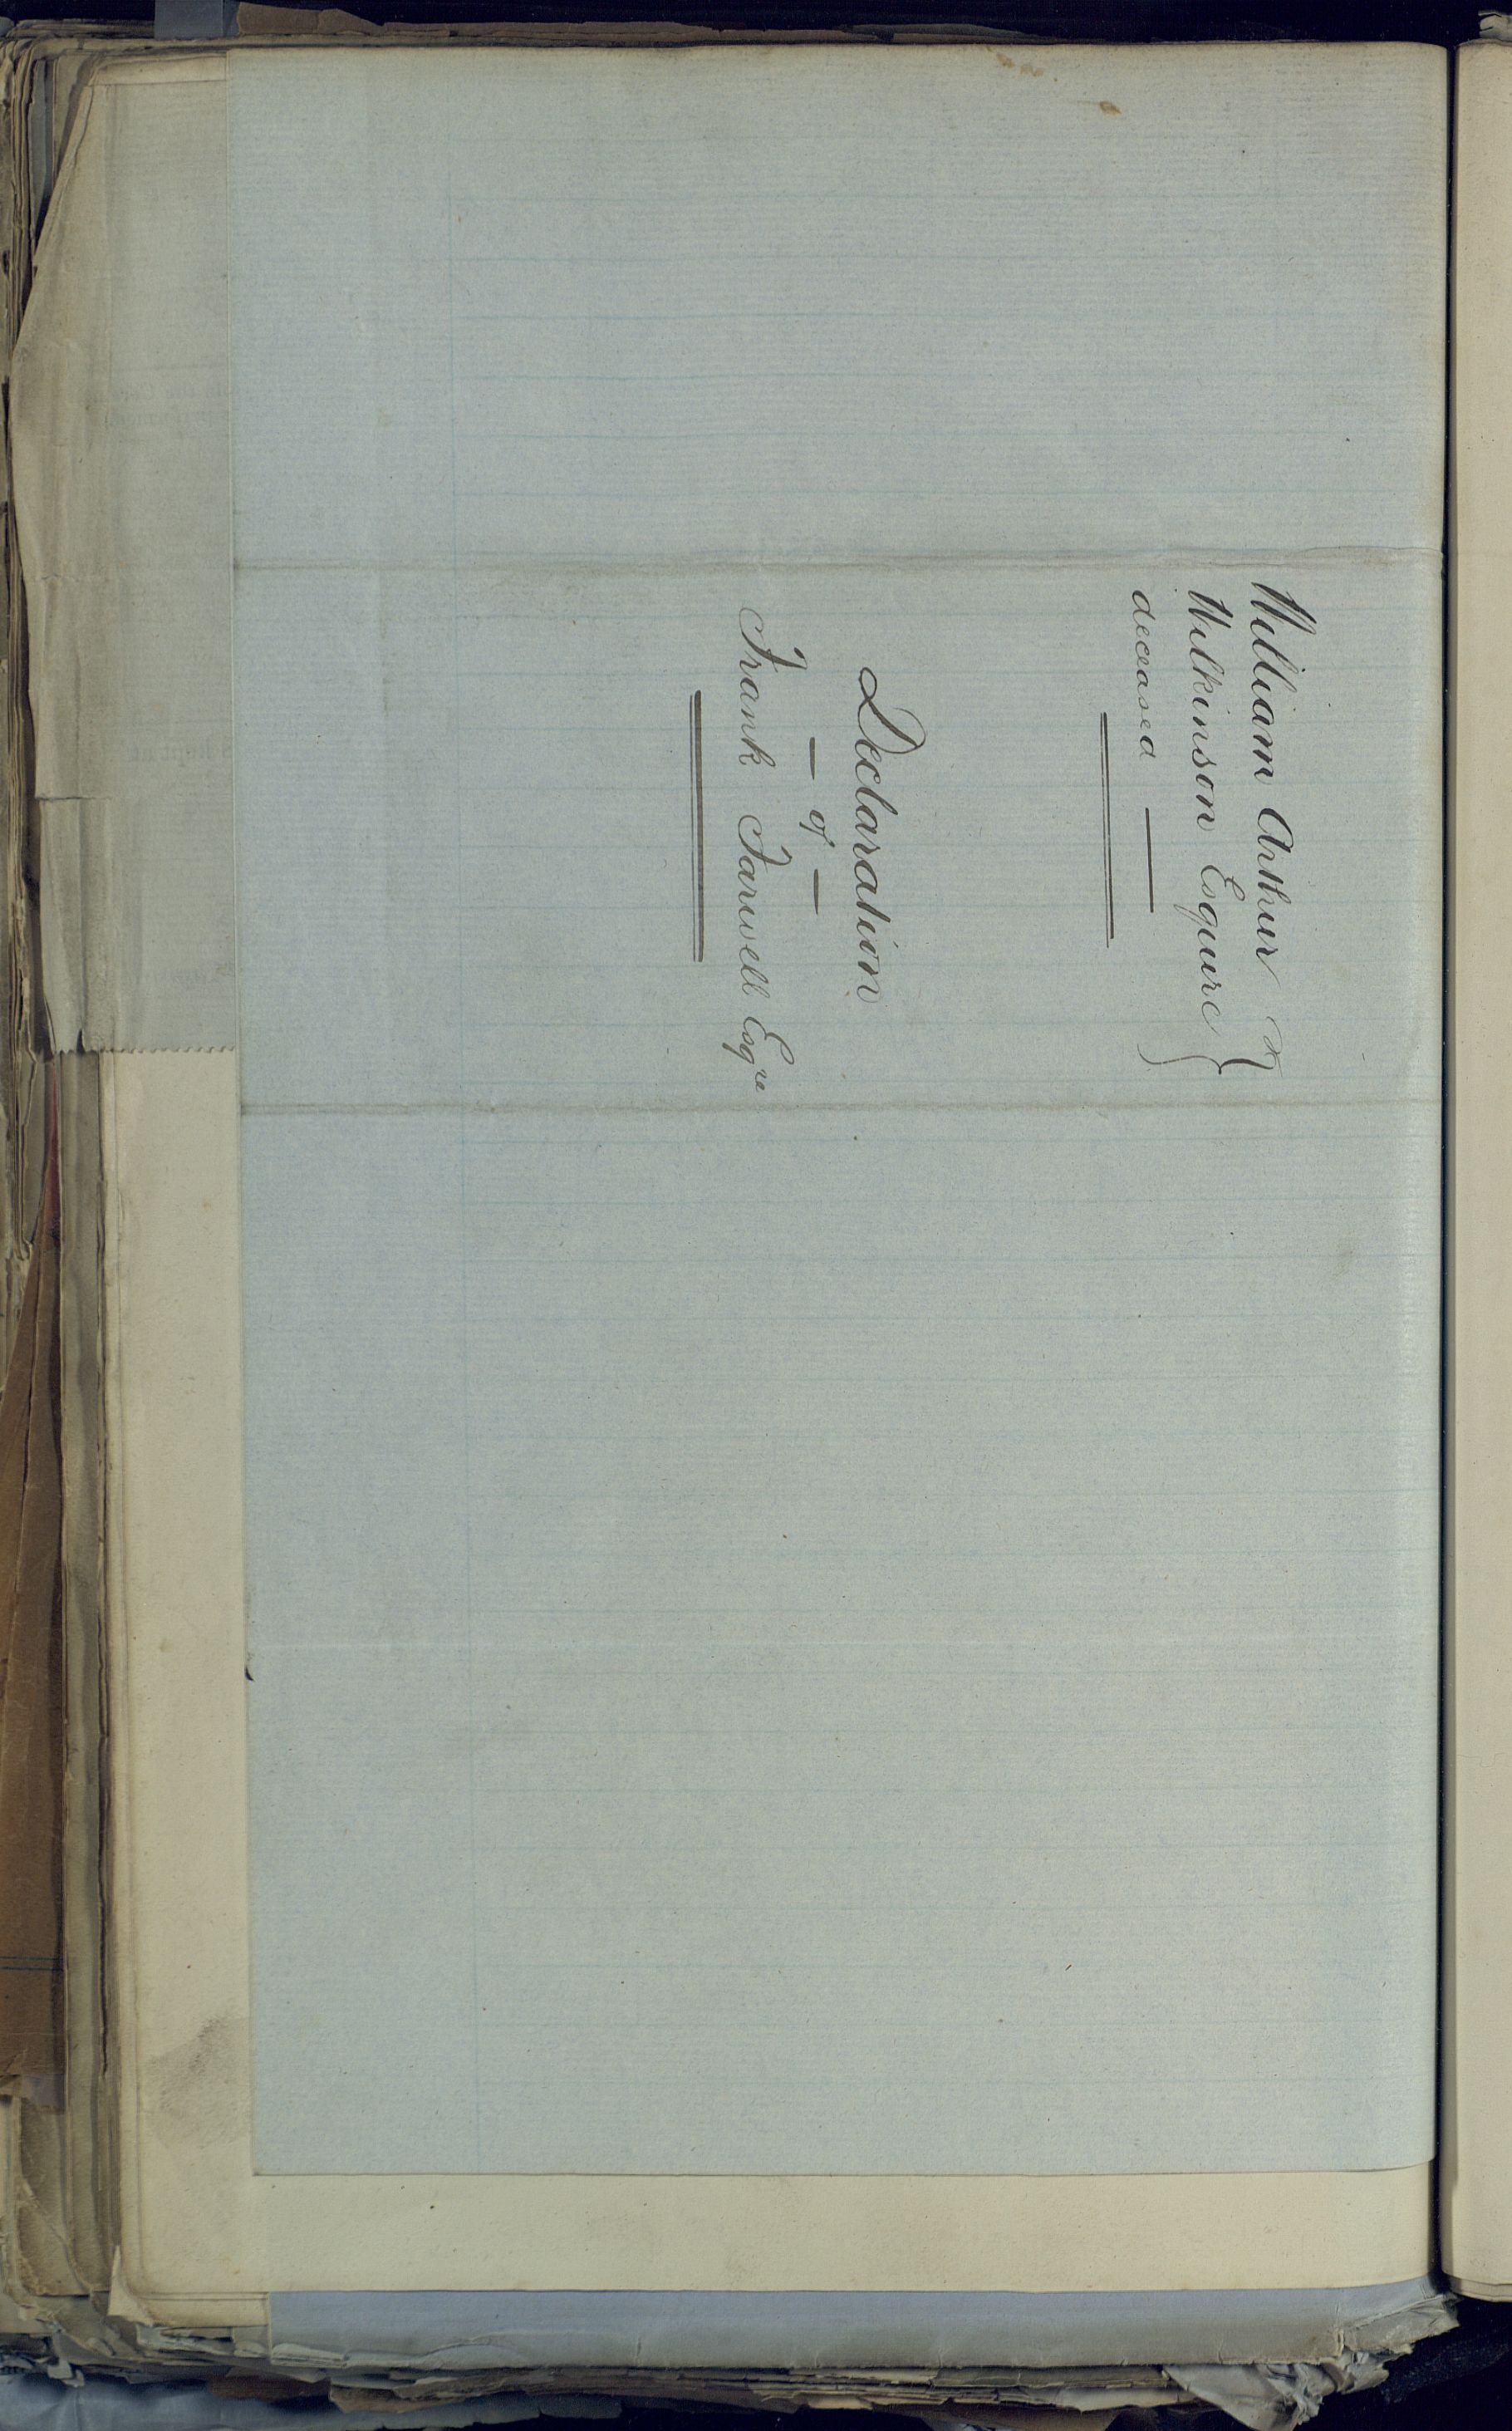 William Arthur
Wilkinson Esquire
deceased —
Declaration
— of —
Frank Farwell Esqre